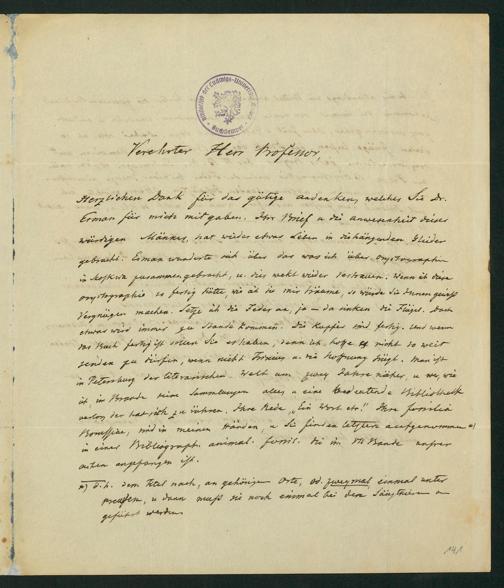 Verehrter Herr Professor,
Herzlichen Dank für das gütige Andenken, welches Sie Dr.
Erman für mich mitgaben. Ihr Brief u die Anwesenheit dieses
würdigen Mannes, hat wieder etwas Leben in die hängenden Glieder
gebracht. Erman wunderte sich über das was ich über Oryctographie
in Moskwa zusammengebracht, u. dies weckt wieder Vertrauen. Wenn ich diese
Oryctographie so fertig hätte, wie ich sie mir träume, so würde sie Ihnen gewiss
Vergnügen machen. Setze ich die Feder an, ja — da sinken die Flügel. Doch
etwas wird immer zu Stande kommen. Die Kupfer sind fertig. Und wenn
das Buch fertig ist sollen Sie es haben, denn ich hoffe es nicht so weit
senden zu dürfen, wenn nicht die Hoffnung trügt. Man ist
in Petersburg der literarischen Welt um zwey Jahre näher, u wer, wie
ich, im Brande seine Sammlungen alles u eine bedeutende Bibliothek
verlor, der hat sich zu rühren. Ihre Rede „Ein Wort etc." Ihre fossilia
Borussiae, sind in meinen Händen, u Sie finden letztere aufgenommen *)
in einer Bibliograph. animal. fossil. die im VII Bande unsrer
Acten angefangen ist.
*) d. h. dem Titel nach, an gehörigem Orte, od. zweymal einmal unter
Preußen, u dann muß sie noch einmal bei den Säugthieren
geführt werden
141